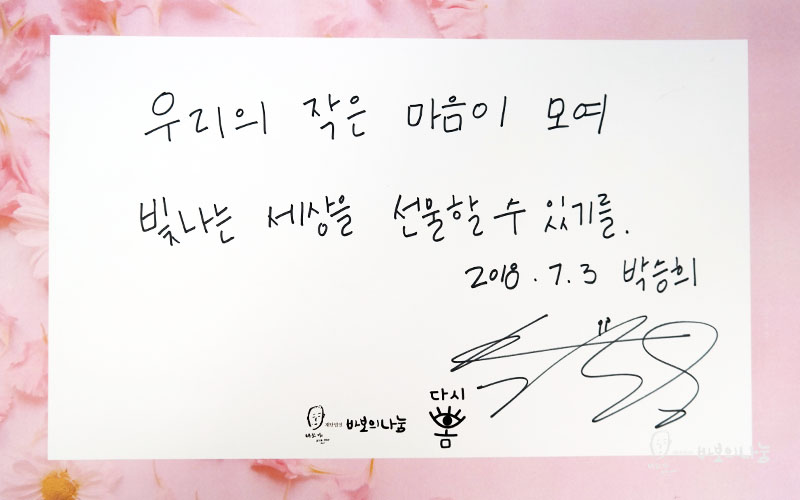 우리의 작은 마음이 모여
빛나는 세상을 선물할 수 있기를.
2018. 7. 3 박승희
다시
봄
재단법인 바보의나눔
바보의나눔